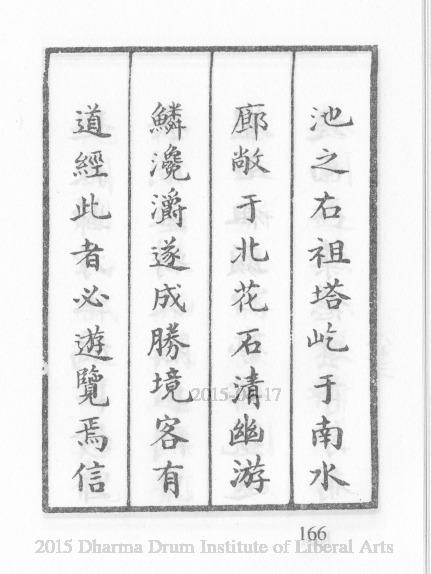 池之右祖塔屹于南水
廊敞于北花石清幽游
鱗瀺灂遂成勝境客有
道經此者必遊覽焉信
166
2015 Dharma Drum Institute of Liberal Arts